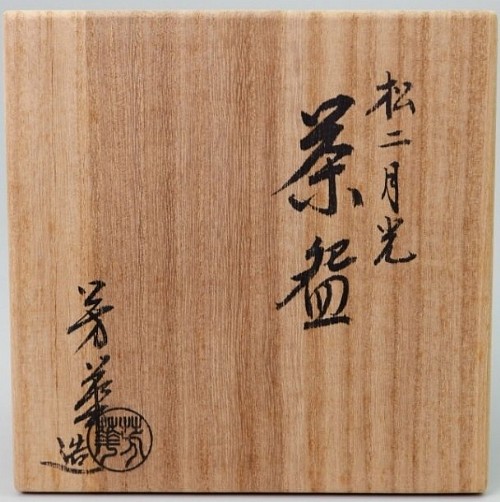 松二月光
茶盌
芳華造
芳華